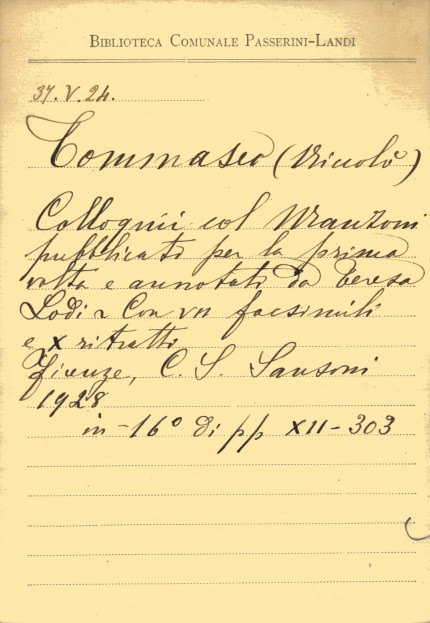 BIBLIOTECA COMUNALE PASSERINI-LANDI
37.V.24.
Tommaseo (Niccolò)
Colloquii col Manzoni
pubblicati per la prima
volta e annotati da Teresa
Lodi Con VII facsimili
e X ritratti
Firenze, C. S. Sansoni
1928
in -16° di pp XII-303